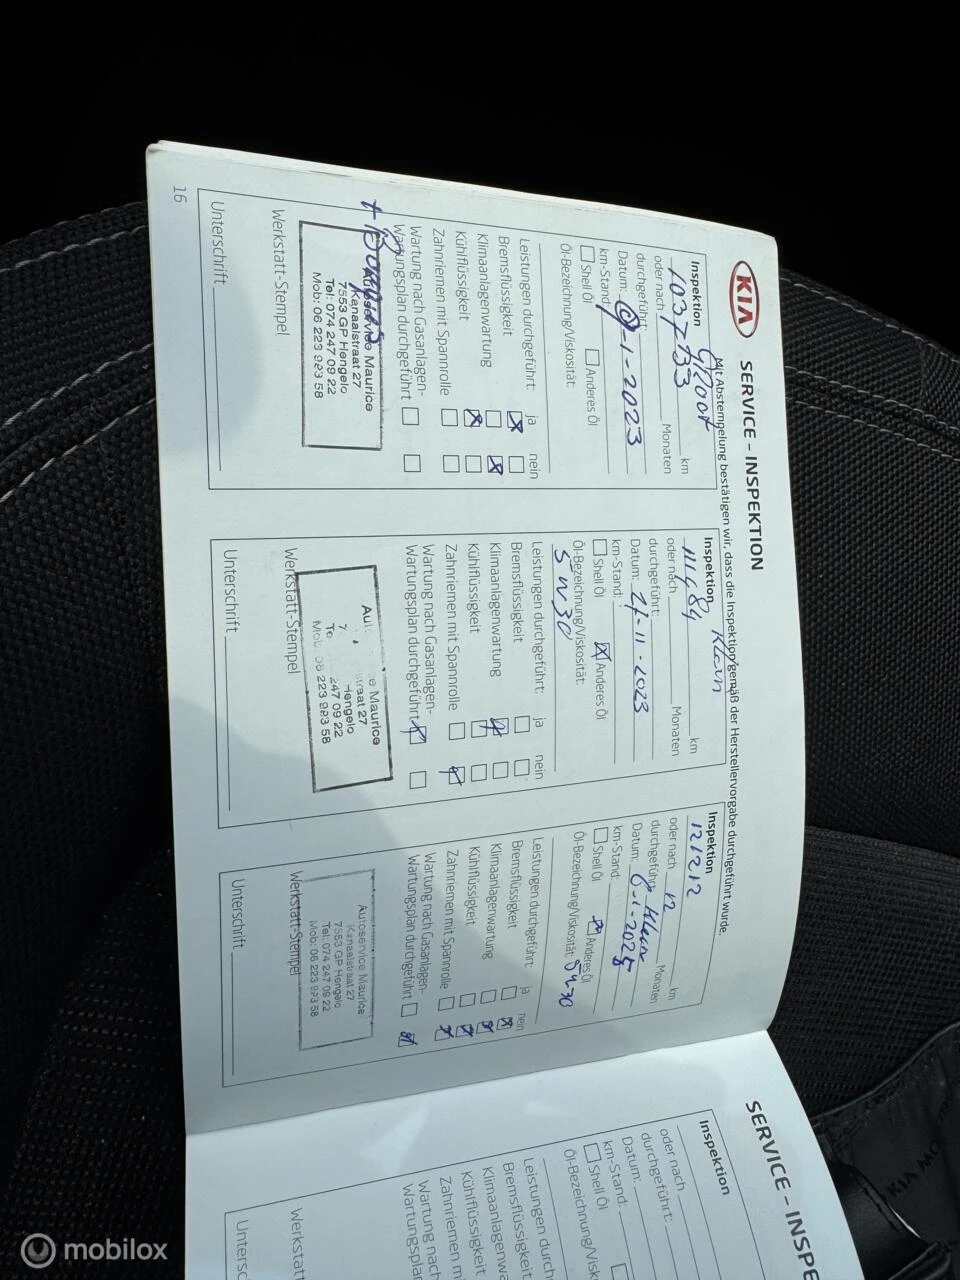 KIA SERVICE – INSPEKTION
Mit Abstempelung bestätigen wir, dass die Inspektion gemäß der Herstellervorgabe durchgeführt wurde.
Inspektion Groot
103733 km
oder nach Monaten
durchgeführt:
Datum: -1-2023
km-Stand:
Shell Öl Anderes Öl
Öl-Bezeichnung/Viskosität:
Leistungen durchgeführt: ja nein
Bremsflüssigkeit
Klimaanlagenwartung
Kühlflüssigkeit
Zahnriemen mit Spannrolle
Wartung nach Gasanlagen-
Wartungsplan durchgeführt
Autoservice Maurice
Kanaalstraat 27
7553 GP Hengelo
Tel: 074 247 09 22
Mob: 06 223 923 58
Werkstatt-Stempel
Unterschrift
16
Inspektion Klein
111484 km
oder nach Monaten
durchgeführt:
Datum: 21-11-2023
km-Stand:
Shell Öl Anderes Öl
Öl-Bezeichnung/Viskosität:
5W30
Leistungen durchgeführt: ja nein
Bremsflüssigkeit
Klimaanlagenwartung
Kühlflüssigkeit
Zahnriemen mit Spannrolle
Wartung nach Gasanlagen-
Wartungsplan durchgeführt
Aut e Maurice
straat 27
7 Hengelo
Te 247 09 22
Mob: 06 223 923 58
Werkstatt-Stempel
Unterschrift
Inspektion
121212 km
oder nach 12 Monaten
durchgeführt: Klein
Datum: 6-1-2025
km-Stand:
Shell Öl Anderes Öl
Öl-Bezeichnung/Viskosität: 5W30
Leistungen durchgeführt: ja nein
Bremsflüssigkeit
Klimaanlagenwartung
Kühlflüssigkeit
Zahnriemen mit Spannrolle
Wartung nach Gasanlagen-
Wartungsplan durchgeführt
Autoservice Maurice
Kanaalstraat 27
7553 GP Hengelo
Tel: 074 247 09 22
Mob: 06 223 923 58
Werkstatt-Stempel
Unterschrift
SERVICE – INSPE
Inspektion
oder nach
durchgeführt:
Datum:
km-Stand:
Shell Öl
Öl-Bezeichnung/Visko
Leistungen durch
Bremsflüssigkeit
Klimaanlagenwart
Kühlflüssigkeit
Zahnriemen mit
Wartung nach
Wartungsplan
Werkstatt
Untersc
KIA MO
mobilox